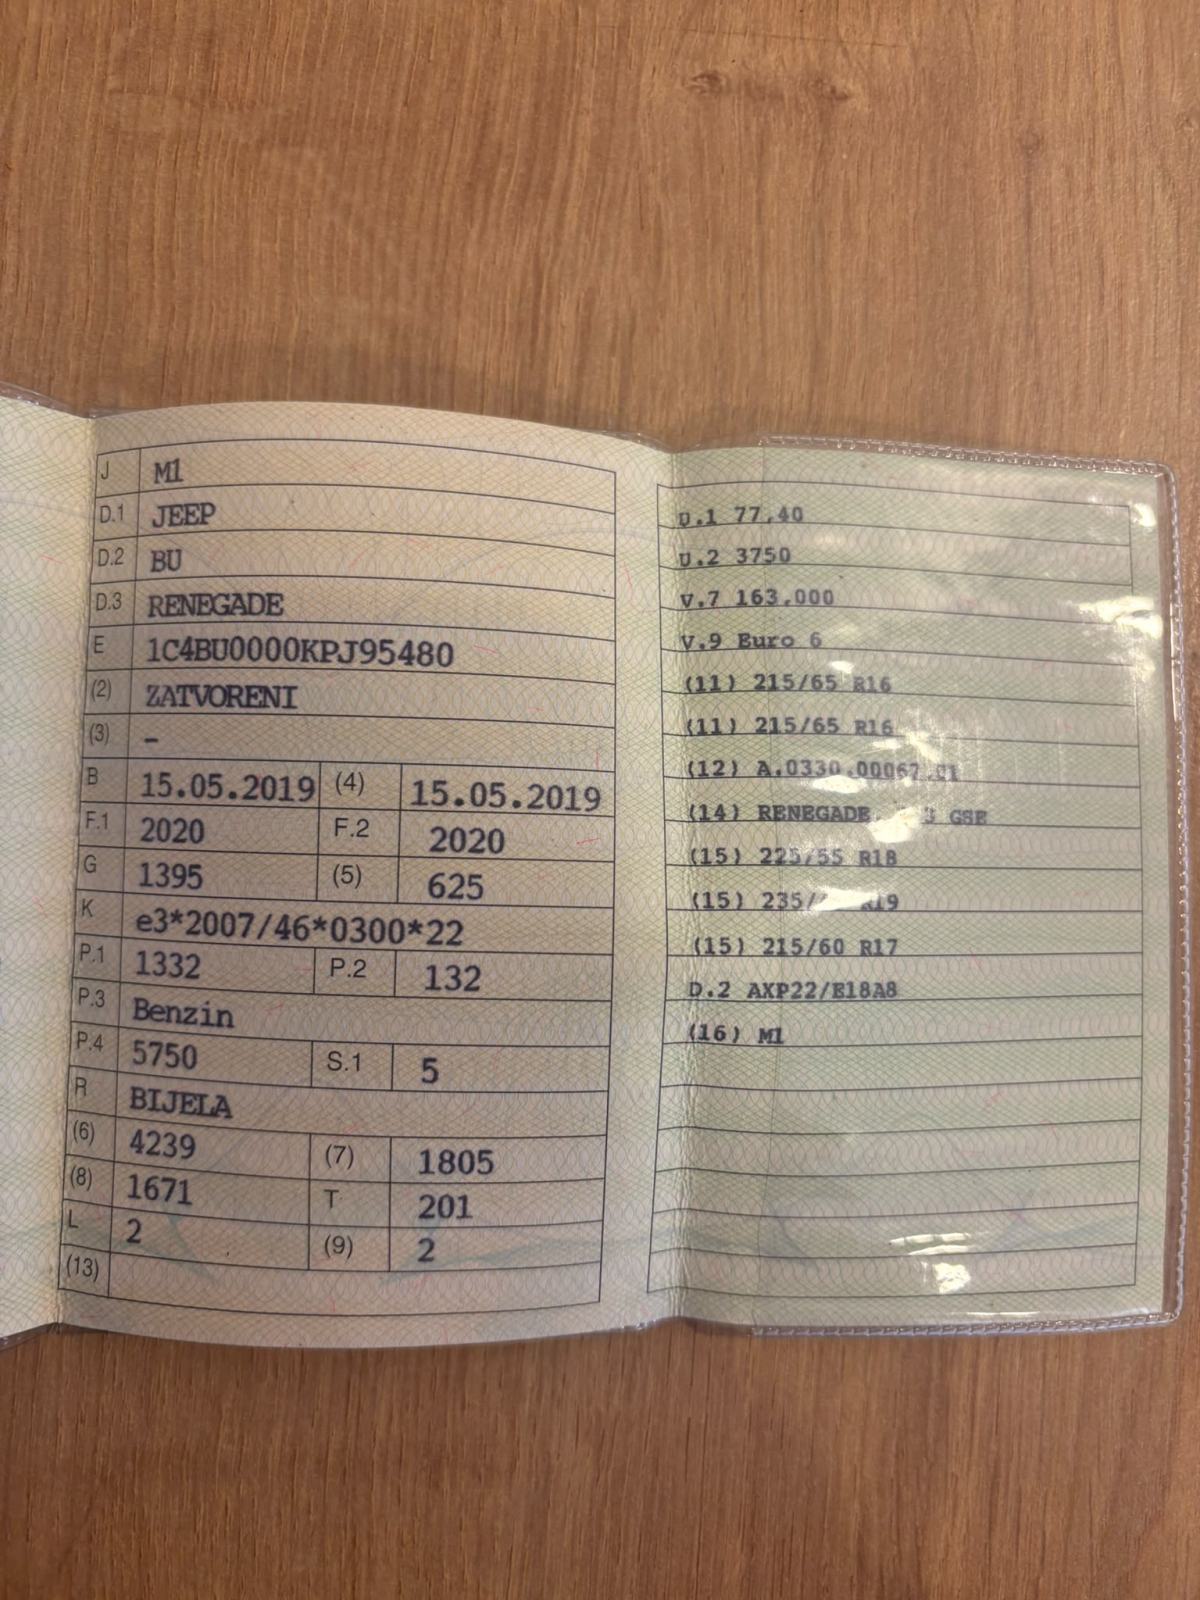 J M1
D.1 JEEP
D.2 BU
D.3 RENEGADE
E 1C4BU0000KPJ95480
(2) ZATVORENI
(3) -
B 15.05.2019 (4) 15.05.2019
F.1 2020 F.2 2020
G 1395 (5) 625
K e3*2007/46*0300*22
P.1 1332 P.2 132
P.3 Benzin
P.4 5750 S.1 5
R BIJELA
(6) 4239 (7) 1805
(8) 1671 T 201
L 2 (9) 2
(13)
U.1 77,40
U.2 3750
V.7 163,000
V.9 Euro 6
(11) 215/65 R16
(11) 215/65 R16
(12) A.0330.00067.01
(14) RENEGADE GSE
(15) 225/55 R18
(15) R19
(15) 215/60 R17
D.2 AXP22/E18A8
(16) M1